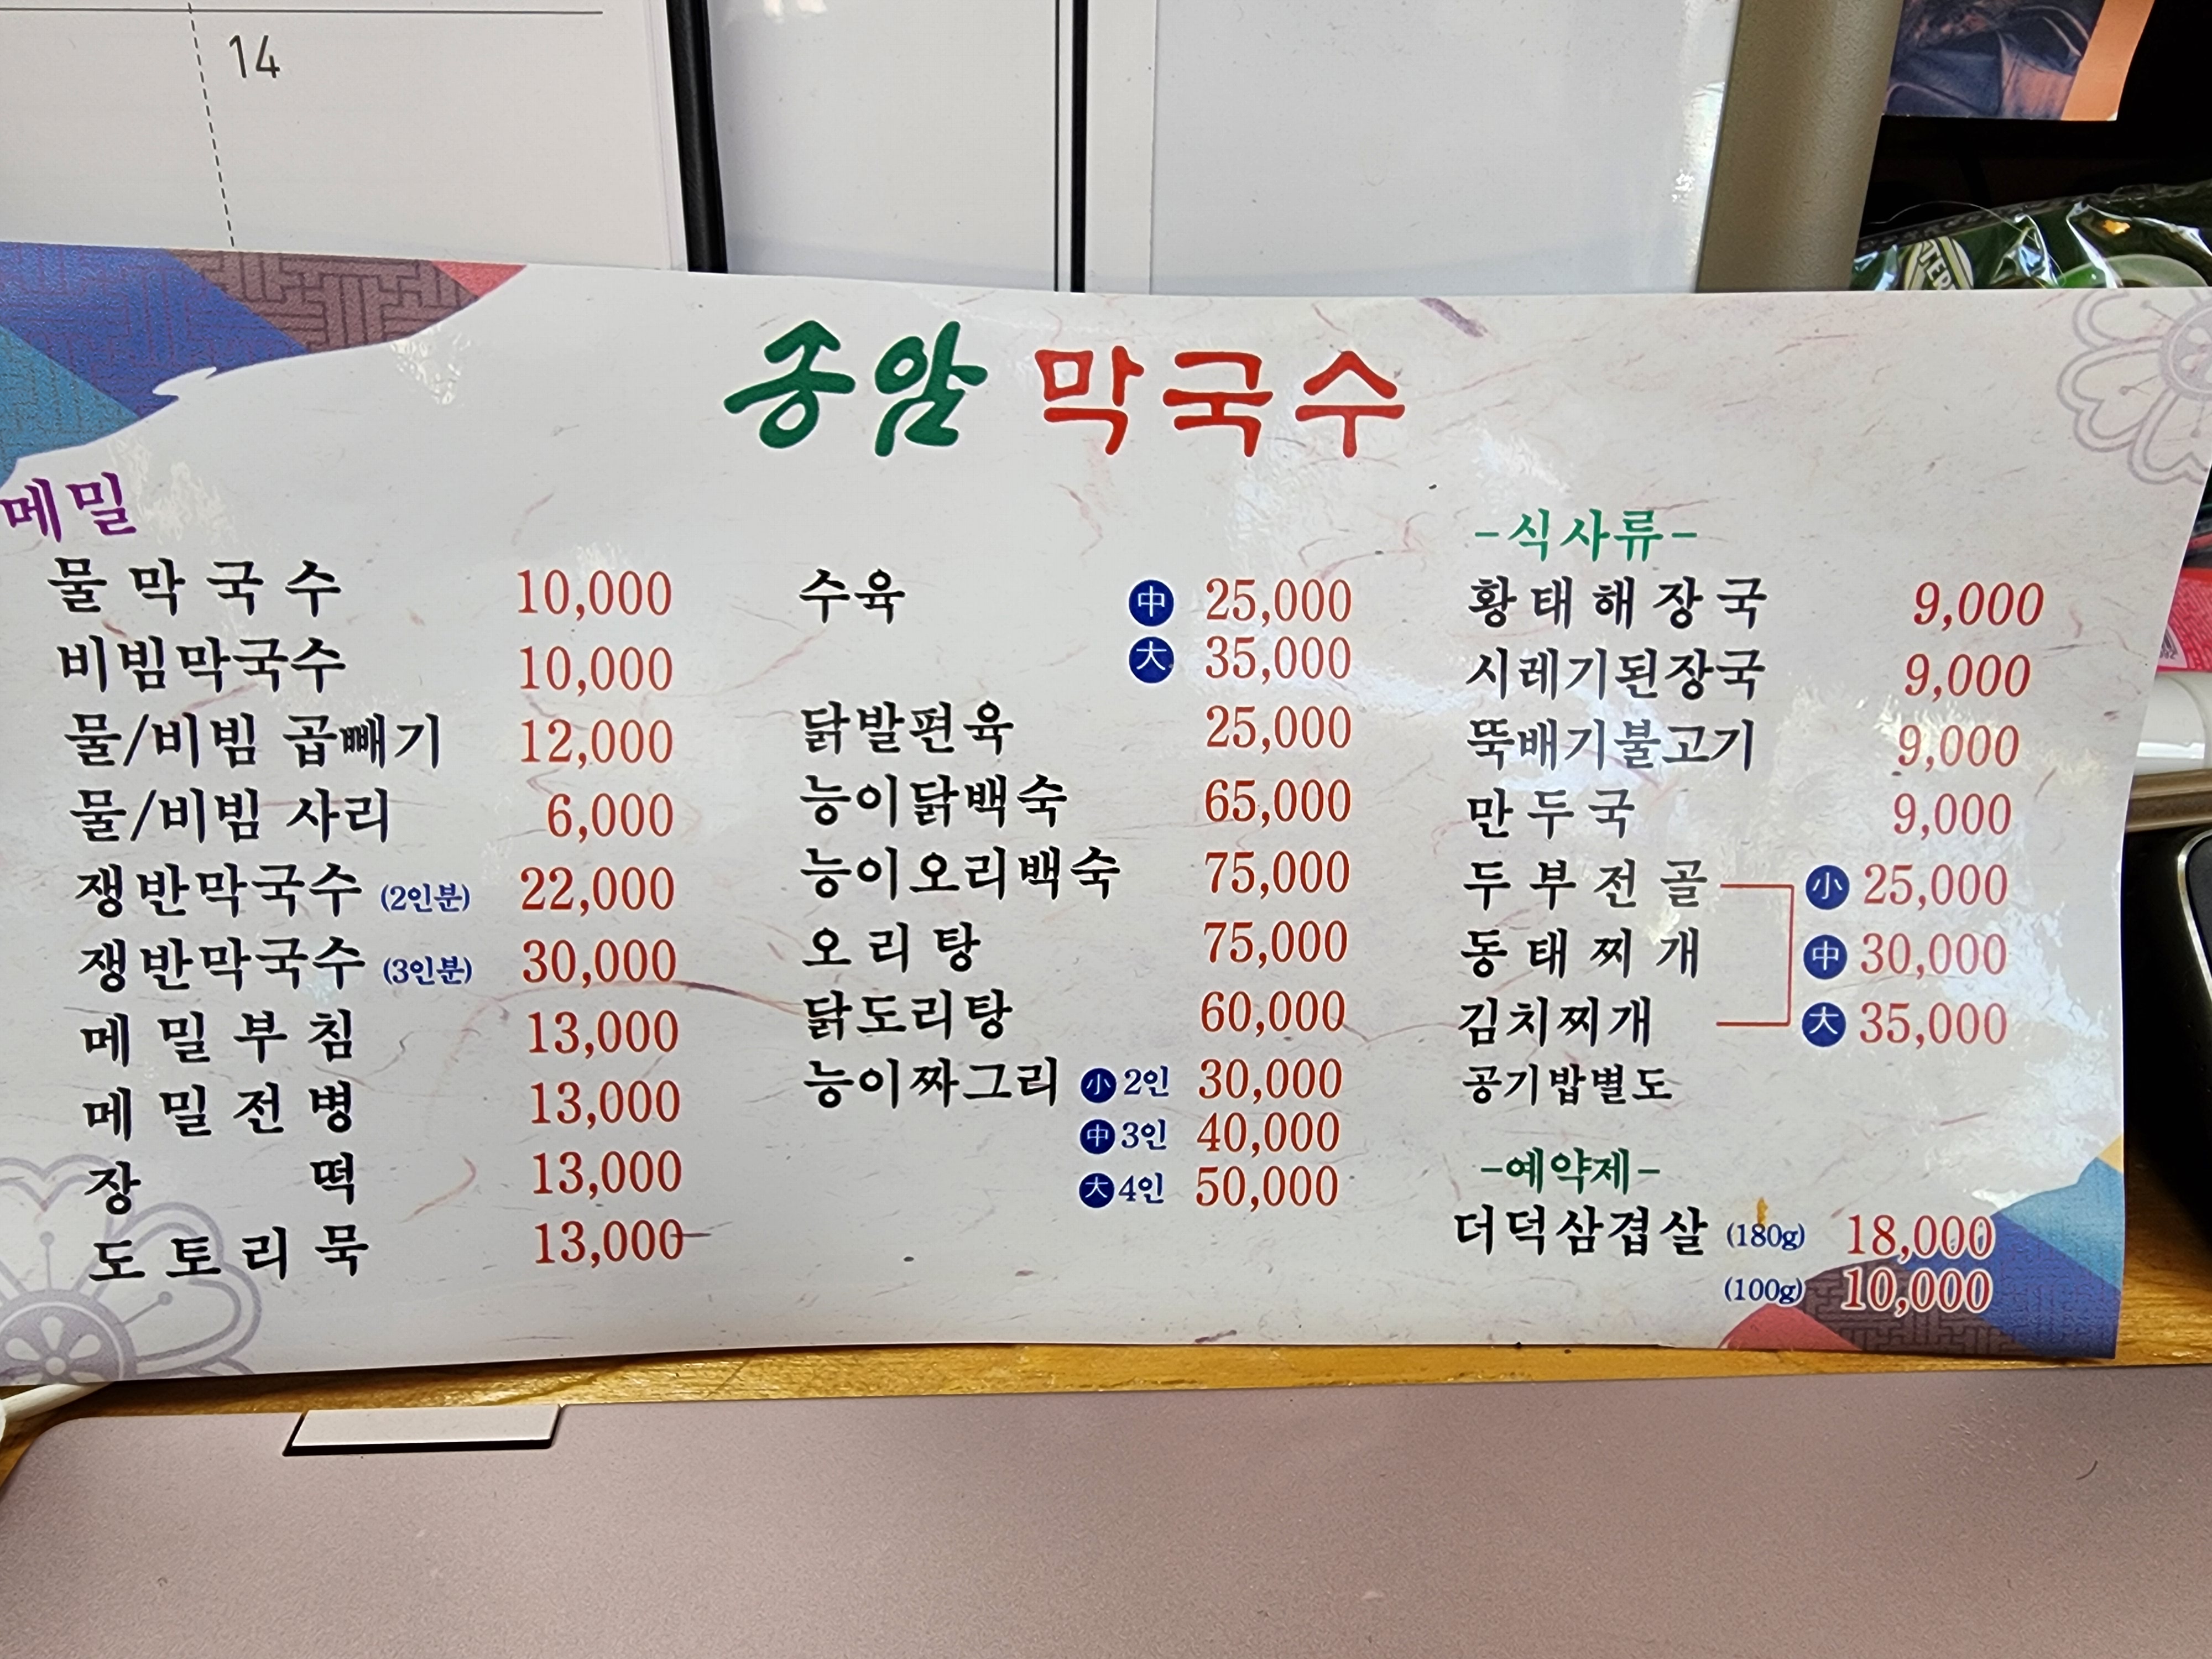 14
송암 막국수
메밀
물막국수 10,000
비빔막국수 10,000
물/비빔 곱빼기 12,000
물/비빔 사리 6,000
쟁반막국수 (2인분) 22,000
쟁반막국수 (3인분) 30,000
메밀부침 13,000
메밀전병 13,000
장떡 13,000
도토리묵 13,000
수육 中 25,000
大 35,000
닭발편육 25,000
능이닭백숙 65,000
능이오리백숙 75,000
오리탕 75,000
닭도리탕 60,000
능이짜그리 小 2인 30,000
中 3인 40,000
大 4인 50,000
-식사류-
황태해장국 9,000
시레기된장국 9,000
뚝배기불고기 9,000
만두국 9,000
두부전골 小 25,000
동태찌개 中 30,000
김치찌개 大 35,000
공기밥별도
-예약제-
더덕삼겹살 (180g) 18,000
(100g) 10,000